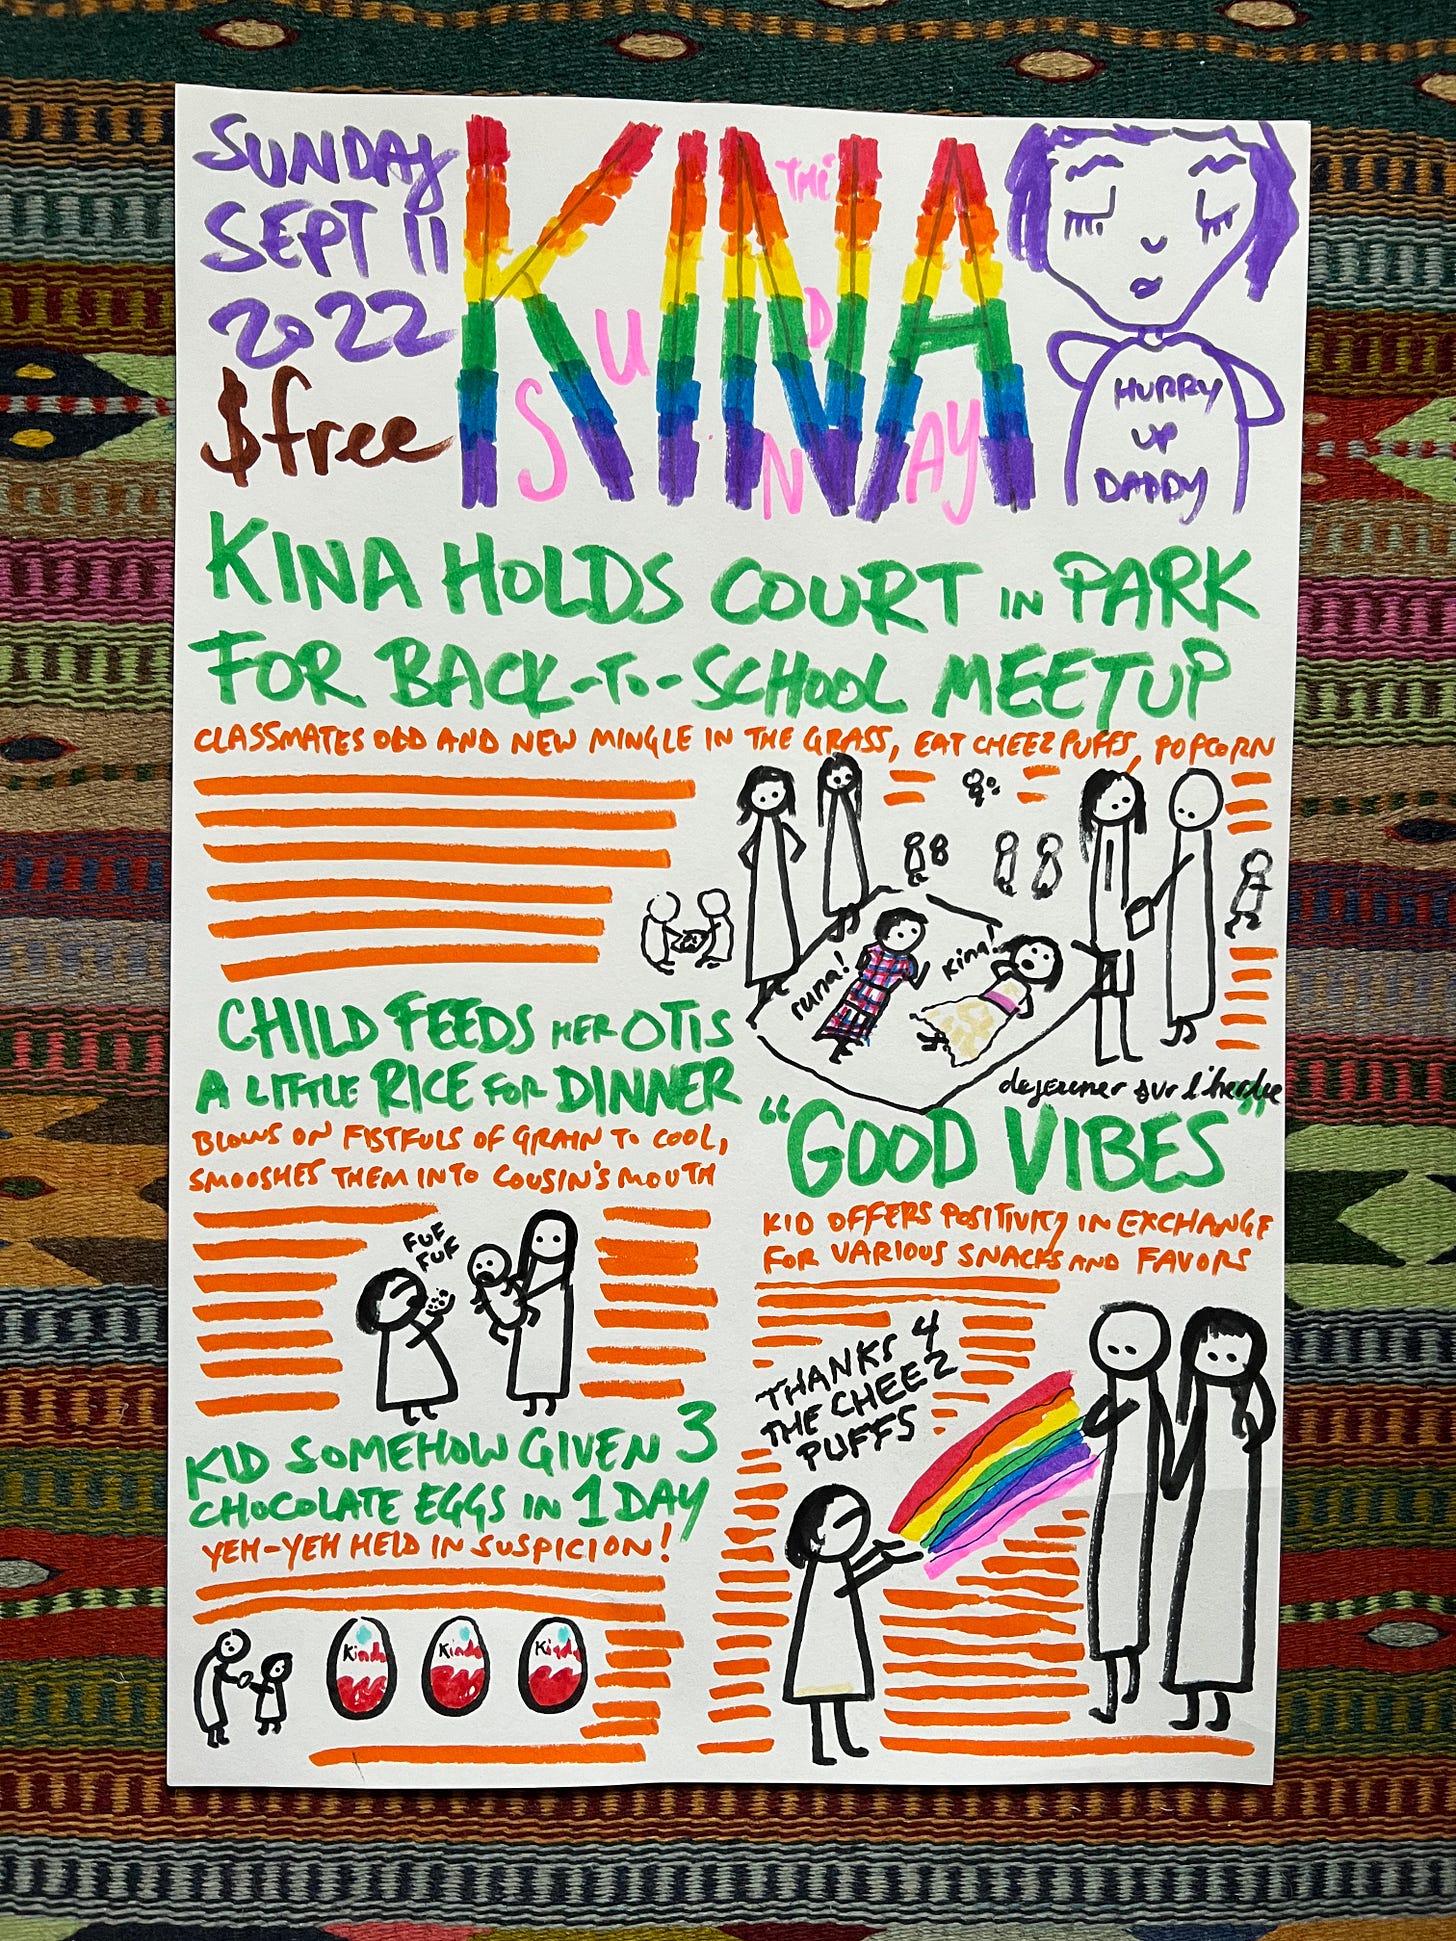 SUNDAY
SEPT 11
2022
$free
KINA
THE
SUNDAY
HURRY
UP
DADDY
KINA HOLDS COURT IN PARK
FOR BACK-TO-SCHOOL MEETUP
CLASSMATES OLD AND NEW MINGLE IN THE GRASS, EAT CHEEZ PUFFS, POPCORN
runa!
Kina!
dejeuner sur l'herbe
CHILD FEEDS HER OTIS
A LITTLE RICE FOR DINNER
BLOWS ON FISTFULS OF GRAIN TO COOL,
SMOOSHES THEM INTO COUSIN'S MOUTH
FUF
FUF
"GOOD VIBES"
KID OFFERS POSITIVITY IN EXCHANGE
FOR VARIOUS SNACKS AND FAVORS
THANKS 4
THE CHEEZ
PUFFS
KID SOMEHOW GIVEN 3
CHOCOLATE EGGS IN 1 DAY
YEH-YEH HELD IN SUSPICION!
Kinde
Kinde
Kinde